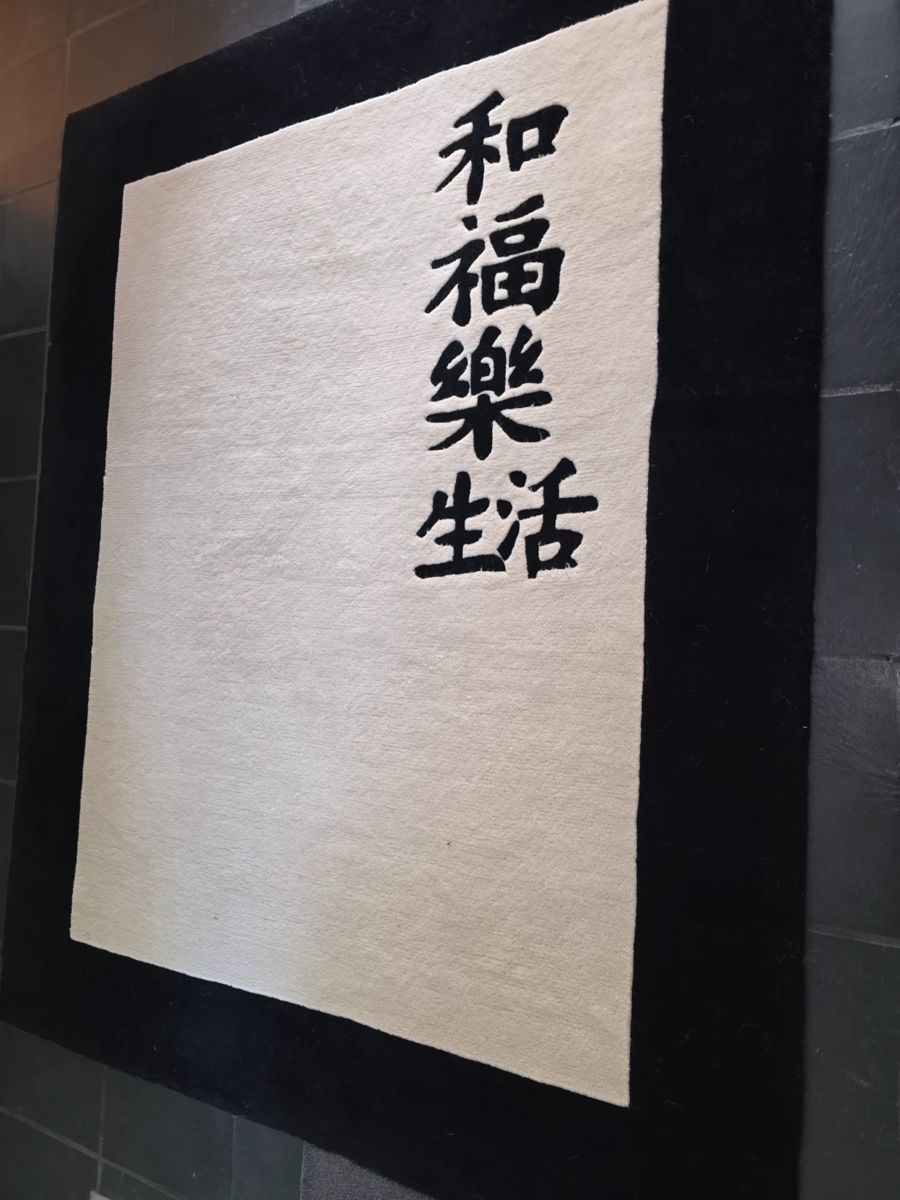 和
福
樂
生活